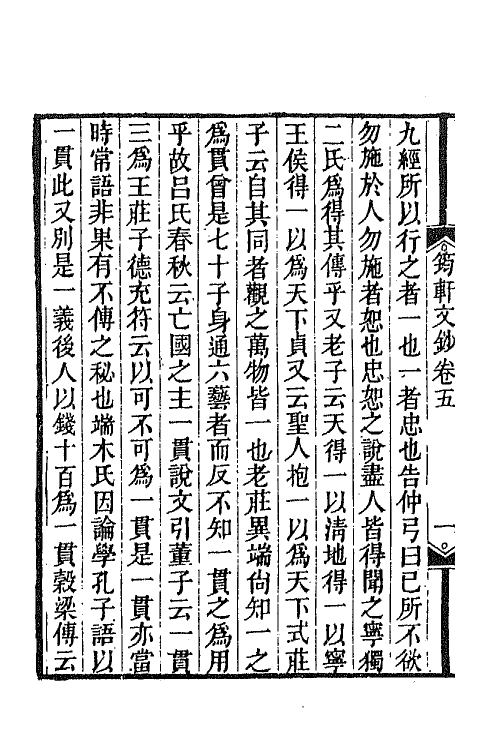 筠軒文鈔卷五
一
九經所以行之者一也一者忠也告仲弓曰己所不欲
勿施於人勿施者恕也忠恕之說盡人皆得聞之寧獨
二氏爲得其傳乎又老子云天得一以淸地得一以寧
王侯得一以爲天下貞又云聖人抱一以爲天下式莊
子云自其同者觀之萬物皆一也老莊異端尙知一之
爲貫曾是七十子身通六藝者而反不知一貫之爲用
乎故吕氏春秋云亡國之主一貫說文引董子云一貫
三爲王莊子德充符云以可不可爲一貫是一貫亦當
時常語非果有不傳之秘也端木氏因論學孔子語以
一貫此又別是一義後人以錢十百爲一貫穀梁傳云